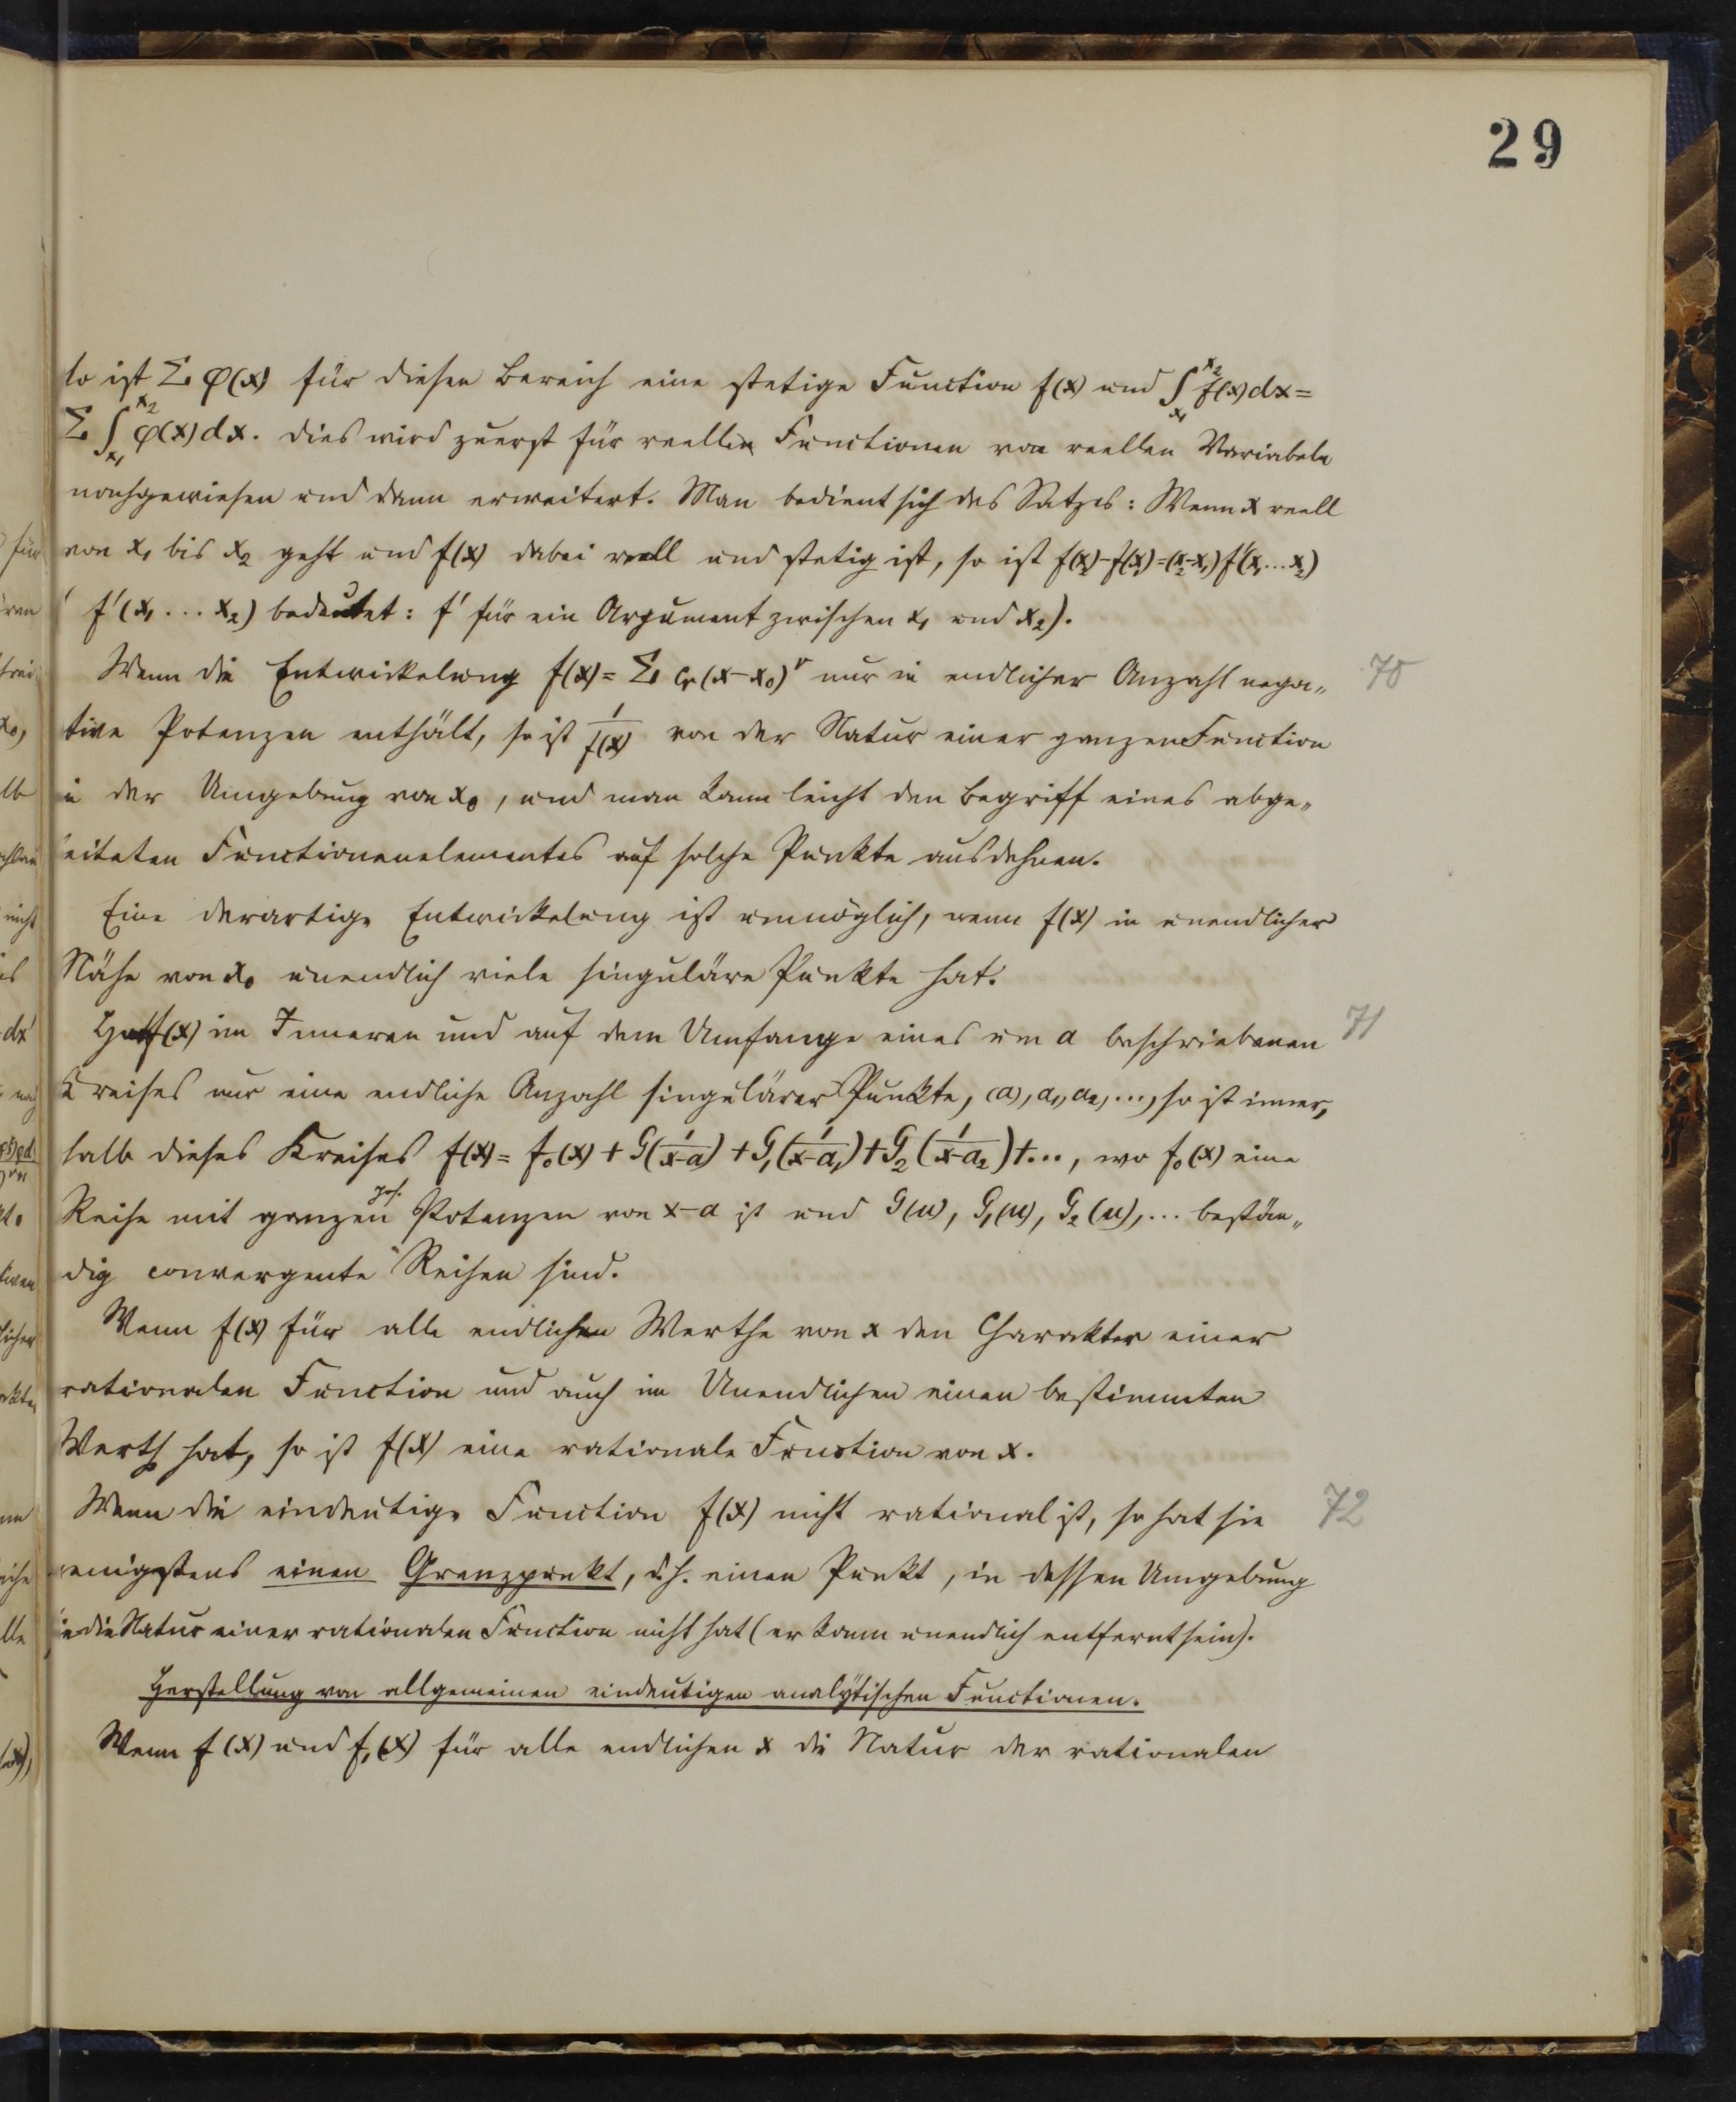 29
so ist Σ φ(x) für diesen Bereich eine stetige Function f(x) und ∫_{x₁}^{x₂} f(x)dx =
Σ ∫_{x₁}^{x₂} φ(x)dx. Dies wird zuerst für reelle Functionen von reellen Variabeln
nachgewiesen und dann erweitert. Man bedient sich des Satzes: Wenn x reell
von x₁ bis x₂ geht und f(x) dabei reell und stetig ist, so ist f(x₂)-f(x₁)=(x₂-x₁)f'(x₁...x₂)
f'(x₁...x₂) bedeutet: f' für ein Argument zwischen x₁ und x₂).
Wenn die Entwickelung f(x) = Σ cᵥ(x-x₀)^ν nur in endlicher Anzahl nega-
70
tive Potenzen enthält, so ist 1/f(x) von der Natur einer ganzen Function
in der Umgebung von x₀, und man kann leicht den Begriff eines abge-
leiteten Functionenelementes auf solche Punkte ausdehnen.
Eine derartige Entwickelung ist unmöglich, wenn f(x) in unendlicher
Nähe von x₀ unendlich viele singuläre Punkte hat.
Hat f(x) im Inneren und auf dem Umfange eines um a beschriebenen
71
Kreises nur eine endliche Anzahl singulärer Punkte, (a), a₁, a₂, ..., so ist inner-
halb dieses Kreises f(x) = f₀(x) + G(1/(x-a)) + G₁(1/(x-a₁)) + G₂(1/(x-a₂)) + ..., wo f₀(x) eine
Reihe mit ganzen pos. Potenzen von x-a ist und G(u), G₁(u), G₂(u), ... bestän-
dig convergente Reihen sind.
Wenn f(x) für alle endlichen Werthe von x den Charakter einer
rationalen Function und auch im Unendlichen einen bestimmten
Werth hat, so ist f(x) eine rationale Function von x.
Wenn die eindeutige Function f(x) nicht rational ist, so hat sie
72
wenigstens einen Grenzpunkt, d.h. einen Punkt, in dessen Umgebung
sie die Natur einer rationalen Function nicht hat (er kann unendlich entfernt sein).
Herstellung von allgemeinen eindeutigen analytischen Functionen.
Wenn f(x) und f₁(x) für alle endlichen x die Natur der rationalen